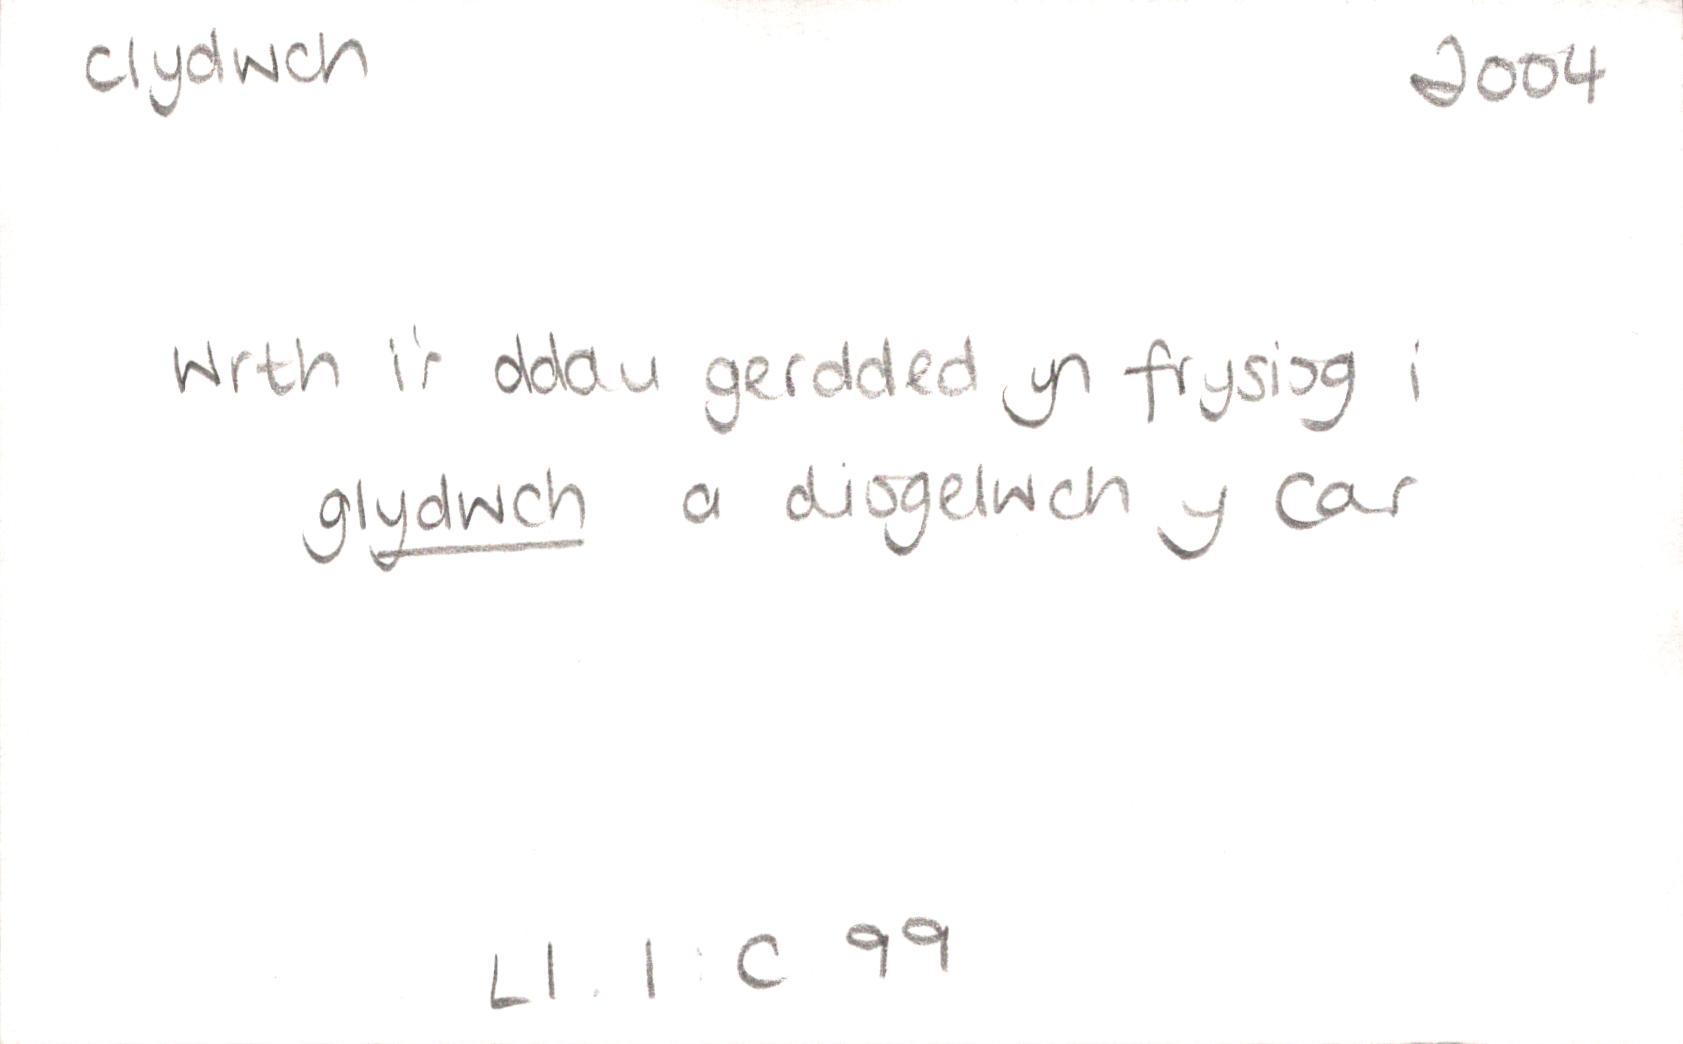 clydwch 2004
Wrth i'r ddau gerdded yn frysiog i
glydwch a diogelwch y car
Ll. I: C 99